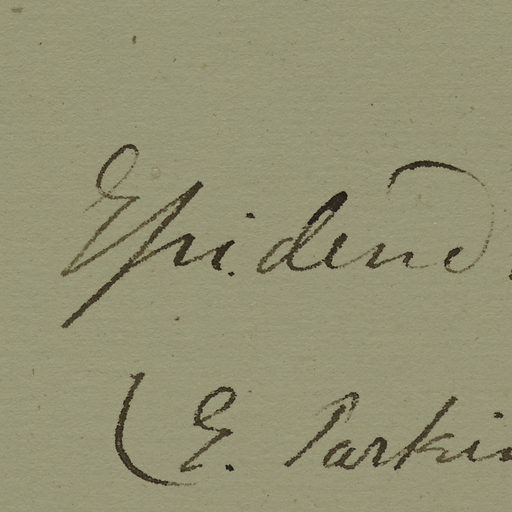 Epidend.
(E. Parkin